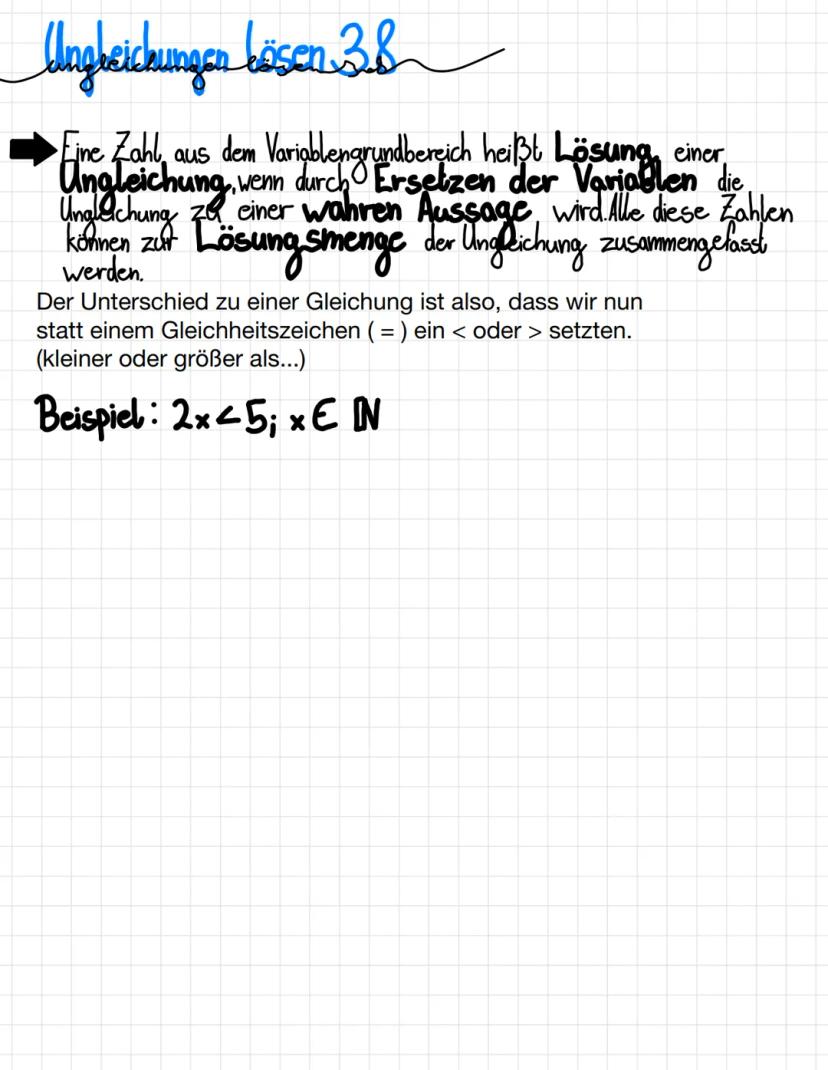 Ungleichungen lösen 3.8
Ungleichungen lösen 3.8
Eine Zahl aus dem Variablengrundbereich heißt Lösung einer
Ungleichung, wenn durch Ersetzen der Variablen die
Ungleichung zu einer wahren Aussage wird. Alle diese Zahlen
können zur Lösungsmenge der Ungleichung zusammengefasst
werden.
Der Unterschied zu einer Gleichung ist also, dass wir nun
statt einem Gleichheitszeichen ( = ) ein < oder > setzten.
(kleiner oder größer als...)
Beispiel: 2x<5; x∈ ℕ